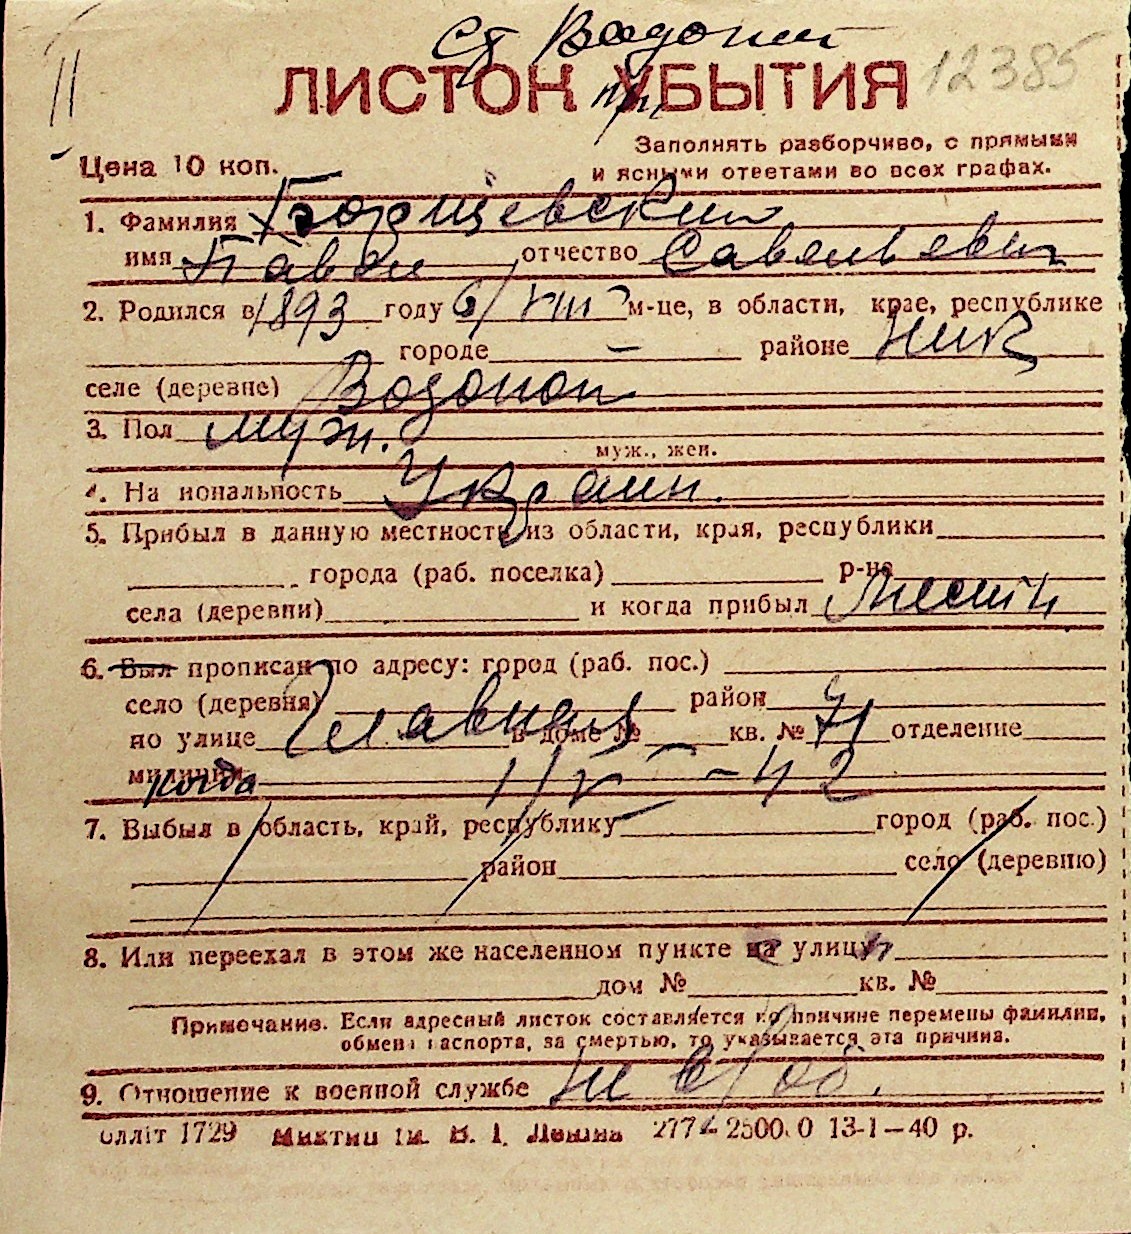 ст Водопой
ЛИСТОК УБЫТИЯ 12385
Цена 10 коп.
Заполнять разборчиво, с прямыми
и ясными ответами во всех графах.
1. Фамилия Борщевский
имя Павел отчество Савельевич
2. Родился в 1893 году 6/VIII м-це, в области, крае, республике
городе — районе Ник
селе (деревне) Водопой
3. Пол муж.
муж., жен.
4. На иональность Украин.
5. Прибыл в данную местность из области, края, республики
города (раб. поселка) р-на
села (деревни) и когда прибыл местн
6. Был прописан по адресу: город (раб. пос.)
село (деревня) район
по улице Главная в доме № кв. № 71 отделение
милиции когда 1/V - 42
7. Выбыл в область, край, республику город (раб. пос.)
район село (деревню)
8. Или переехал в этом же населенном пункте на улицу
дом № кв. №
Примечание. Если адресный листок составляется по причине перемены фамилии,
обмена паспорта, за смертью, то указывается эта причина.
9. Отношение к военной службе н в/об.
Миктип ім. В. І. Леніна 277 - 2500.0 13-1-40 р.